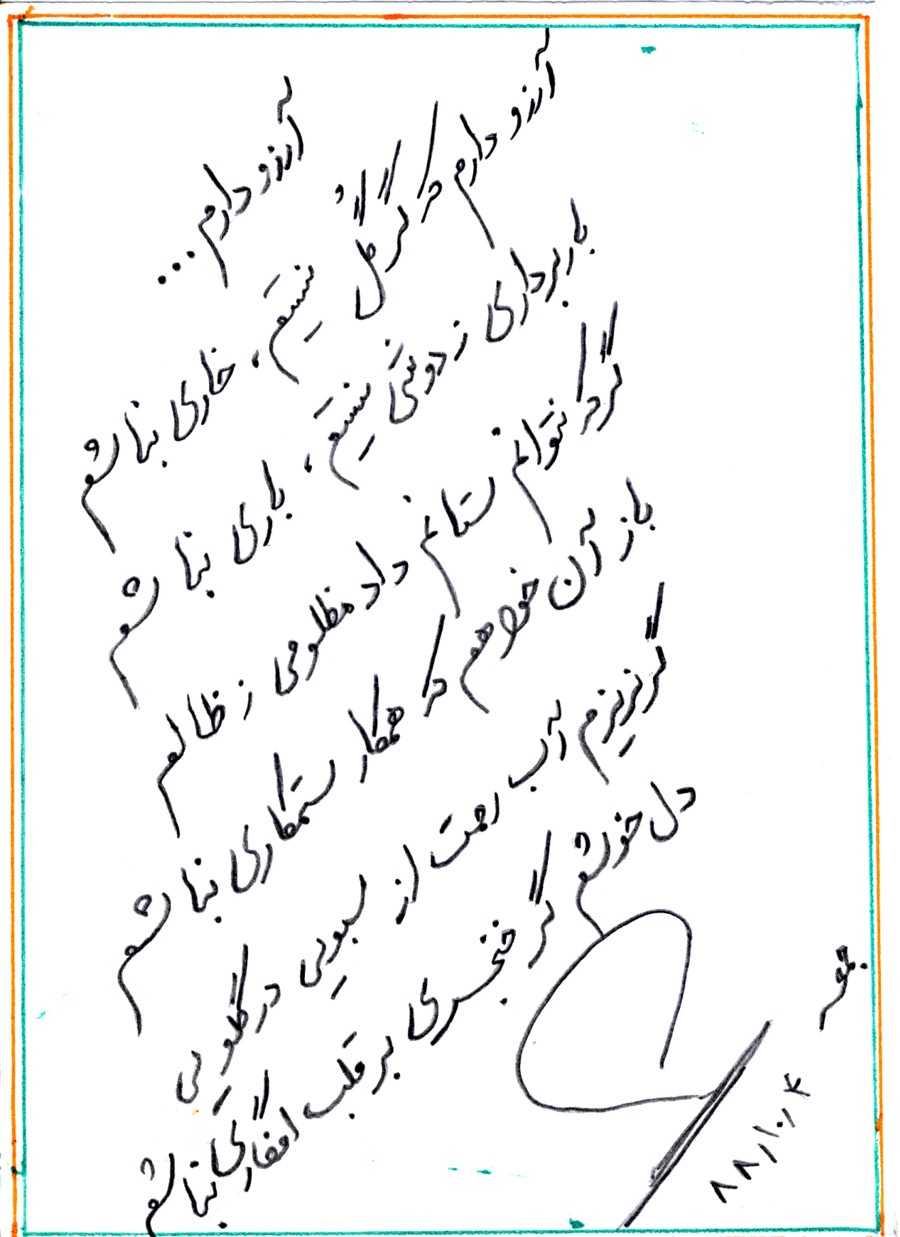 آرزو دارم...
آرزو دارم که گر گل نیستم، خاری نباشم
باربرداری ز دوشی نیستم، باری نباشم
گر که نتوانم ستانم داد مظلومی ز ظالم
باز آن خواهم که همکار ستمکاری نباشم
گر نریزم آب رحمت از سبویی در گلویی
دل خوشم گر خنجری بر قلب افگاری نباشم
جعفر
۸۸/۱۰/۴